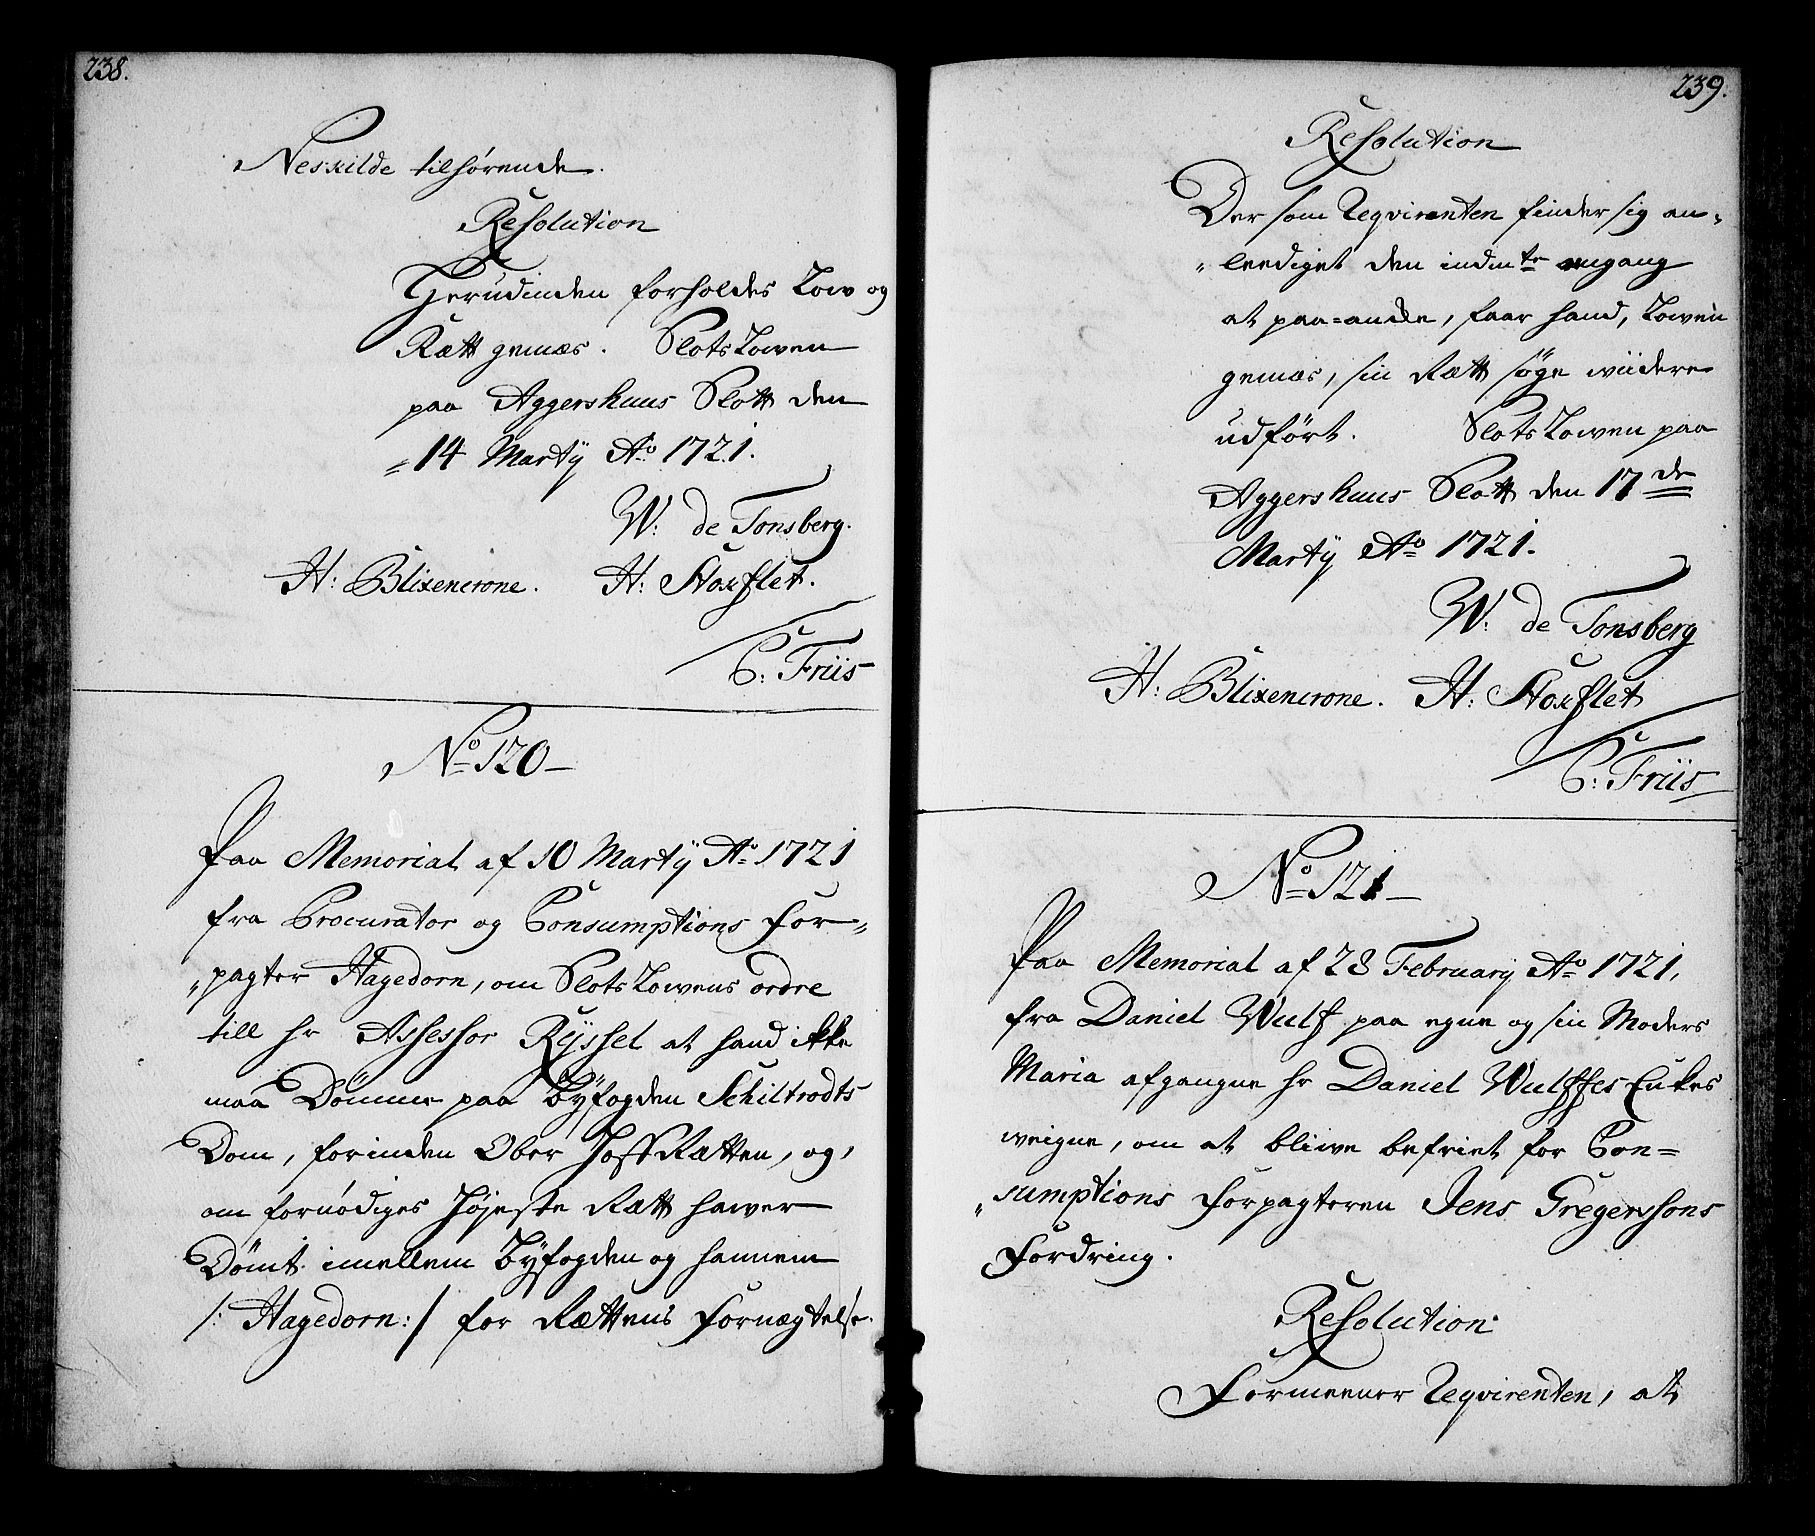 238.
Neskilde tilhørende.
Resolution
Herudinden forholdes Low og
Rætt gemæs. Slots Lowen
paa Aggershuus Slott den
14 Martÿ Ao 1721.
W: de Tonsberg.
H: Blixencrone. H: Stoxflet.
C: Friis
No 120
Paa Memorial af 10 Martÿ Ao 1721
fra Procurator og Consumptions For-
pagter Hagedorn, om Slots Lowens ordre
till hr Assessor Rÿssel at hand ikke
maa Dømme paa Bÿfogden Schiltrodts
Dom, forinden Ober Hoff Rætten, og,
om fornødiges Højeste Rætt hawer
Dømt imellem Bÿfogden og hannem
/: Hagedorn :/ for Rættens Fornægtelse.
239.
Resolution
Der som Reqvirenten finder sig an-
leediget den indmte engang
at paa-ancke, faar hand, Lowen
gemæs, sin Rætt søge wiidere
udført. Slots Lowen paa
Aggershuus Slott den 17de
Martÿ Ao 1721.
W: de Tonsberg
H: Blixencrone. H: Stoxflet
C: Friis
No 121
Paa Memorial af 28 Februarÿ Ao 1721,
fra Daniel Wulf paa egne og sin Moders
Maria afgangne hr Daniel Wulffes Enkes
weigne, om at bliwe befriet for Con-
sumptions Forpagteren Jens Gregerssons
Fordring.
Resolution.
Formeener Reqvirenten, at